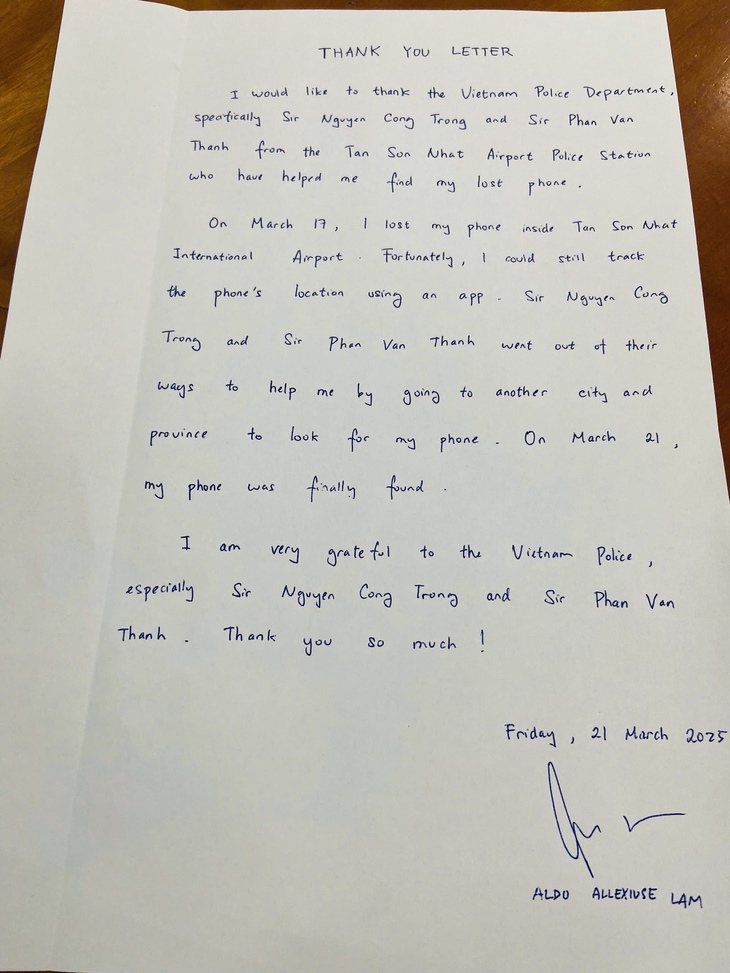 THANK YOU LETTER
I would like to thank the Vietnam Police Department,
specifically Sir Nguyen Cong Trong and Sir Phan Van
Thanh from the Tan Son Nhat Airport Police Station
who have helped me find my lost phone.
On March 17, I lost my phone inside Tan Son Nhat
International Airport. Fortunately, I could still track
the phone's location using an app. Sir Nguyen Cong
Trong and Sir Phan Van Thanh went out of their
ways to help me by going to another city and
province to look for my phone. On March 21,
my phone was finally found.
I am very grateful to the Vietnam Police,
especially Sir Nguyen Cong Trong and Sir Phan Van
Thanh. Thank you so much!
Friday, 21 March 2025
ALDO ALLEXIUSE LAM